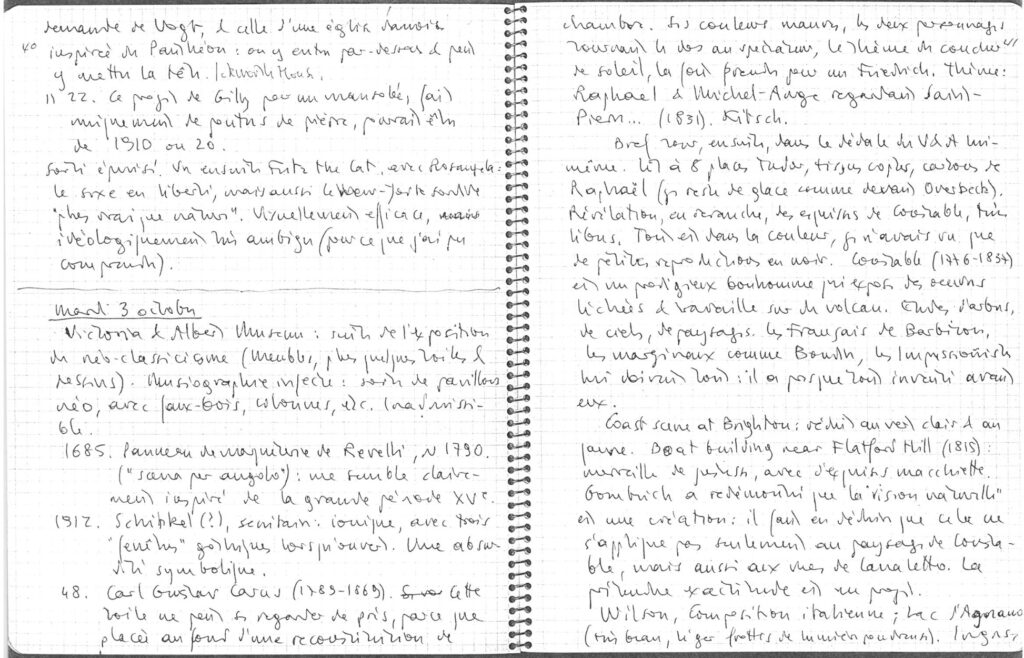 demande de Vogt, & celle d'une église danoise
40
inspirée du Panthéon : on y entre par-dessous & peut
y mettre la tête. Ickworth House.
22. Ce projet de Gilly pour un mausolée, fait
uniquement de poutres de pierre, pourrait être
de 1910 ou 20.
Sorti épuisé. Vu ensuite Fritz the Cat, avec Rosangela :
le sexe en liberté, mais aussi le New-York
"plus vrai que nature". Visuellement efficace,
idéologiquement très ambigu (pour ce que j'ai pu
comprendre).
Mardi 3 octobre
Victoria & Albert Museum : suite de l'exposition
du néo-classicisme (meubles, plus quelques toiles &
dessins). Muséographie infecte : sorte de pavillons
néo, avec faux-bois, colonnes, etc. Inadmissi-
ble.
1685. Panneau de marqueterie de Revelli, ~ 1790.
("scena per angolo") : me semble claire-
ment inspiré de la grande période XVe.
1912. Schinkel (?), secrétaire : ionique, avec trois
"fenêtres" gothiques lorsqu'ouvert. Une absur-
dité symbolique.
48. Carl Gustav Carus (1789-1869). Cette
toile ne peut se regarder de près, parce que
placée au fond d'une reconstitution de
chambre. Ses couleurs mauves, les deux personnages
tournant le dos au spectateur, le thème du coucher
41
de soleil, la font prendre pour un Friedrich. Thème :
Raphael & Michel-Ange regardant Saint-
Pierre... (1831). Kitsch.
Bref tour, ensuite, dans le dédale du V&A lui-
même. Lit à 8 places Tudor, tissus coptes, cartons de
Raphaël (je reste de glace comme devant Overbeck).
Révélation, en revanche, des esquisses de Constable, très
libres. Tout est dans la couleur, je n'avais vu que
de petites reproductions en noir. Constable (1776-1837)
est un prodigieux bonhomme qui expose des œuvres
léchées & travaille sur du volcan. Etudes d'arbres,
de ciels, de paysages. Les Français de Barbizon,
les marginaux comme Boudin, les Impressionnistes
lui doivent tout : il a presque tout inventé avant
eux.
Coast scene at Brighton : réduit au vert clair & au
jaune. Boat building near Flatford Mill (1815) :
merveille de justesse, avec d'exquises macchiette.
Gombrich a redémontré que la "vision naturelle"
est une création : il faut en déduire que cela ne
s'applique pas seulement au paysage de Consta-
ble, mais aussi aux vues de Canaletto. La
prétendue exactitude est un projet.
Wilson, Composition italienne ; Lac d'Agnano
(très beau, léger frottis de lumière poudreuse). Ingres,